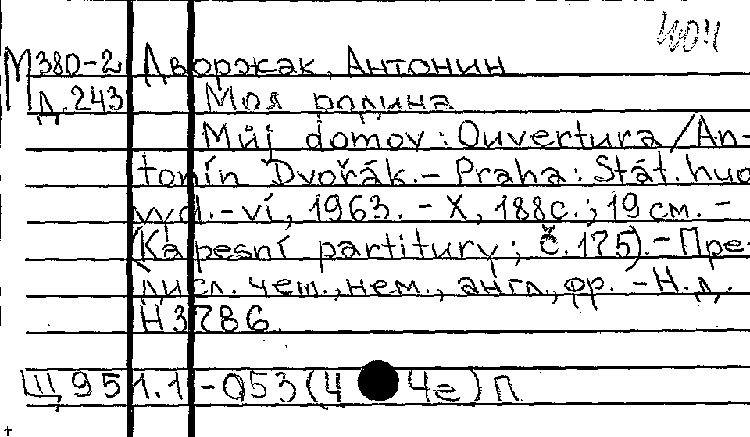 М380-2 Дворжак, Антонин
Д.243 Моя родина
Můj domov : Ouvertura / An-
tonín Dvořák. - Praha : Stát. hud.
vyd.-ví, 1963. - X, 188с.; 19 см. -
(Kapesní partitury ; č. 175). - Пре-
дисл. чеш., нем., англ., фр. - Н.д.
Н3786.
Щ951.1-053(4 4е)П